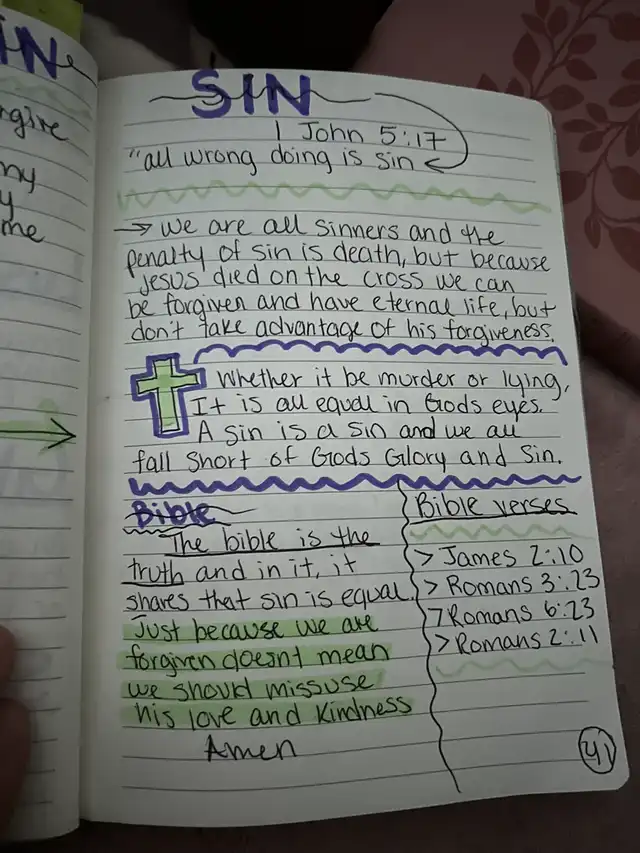 IN
rgive
my
y
me
SIN
1 John 5:17
"all wrong doing is sin
we are all sinners and the
penalty of sin is death, but because
Jesus died on the cross we can
be forgiven and have eternal life, but
don't take advantage of his forgiveness.
Whether it be murder or lying,
It is all equal in Gods eyes.
A sin is a sin and we all
fall short of Gods Glory and Sin.
Bible
The bible is the
truth and in it, it
shares that sin is equal
Just because we are
forgiven doesnt mean
we should missuse
his love and kindness
Amen
Bible verses
> James 2:10
> Romans 3:23
> Romans 6:23
> Romans 2:11
41